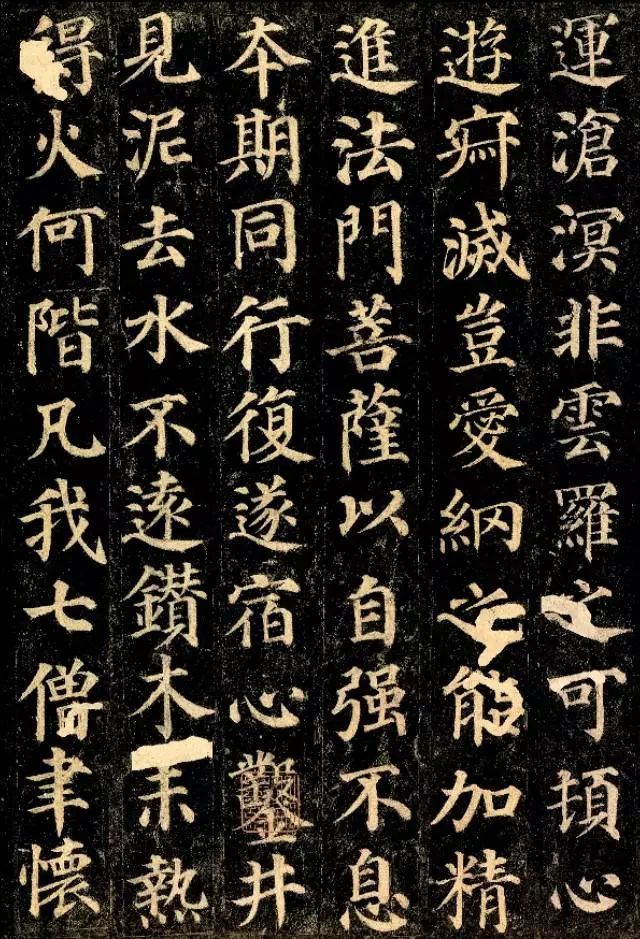 運滄溟非雲羅之可頓心
遊寂滅豈愛網之能加精
進法門菩薩以自强不息
本期同行復遂宿心鑿井
見泥去水不遠鑽木未熱
得火何階凡我七僧聿懷